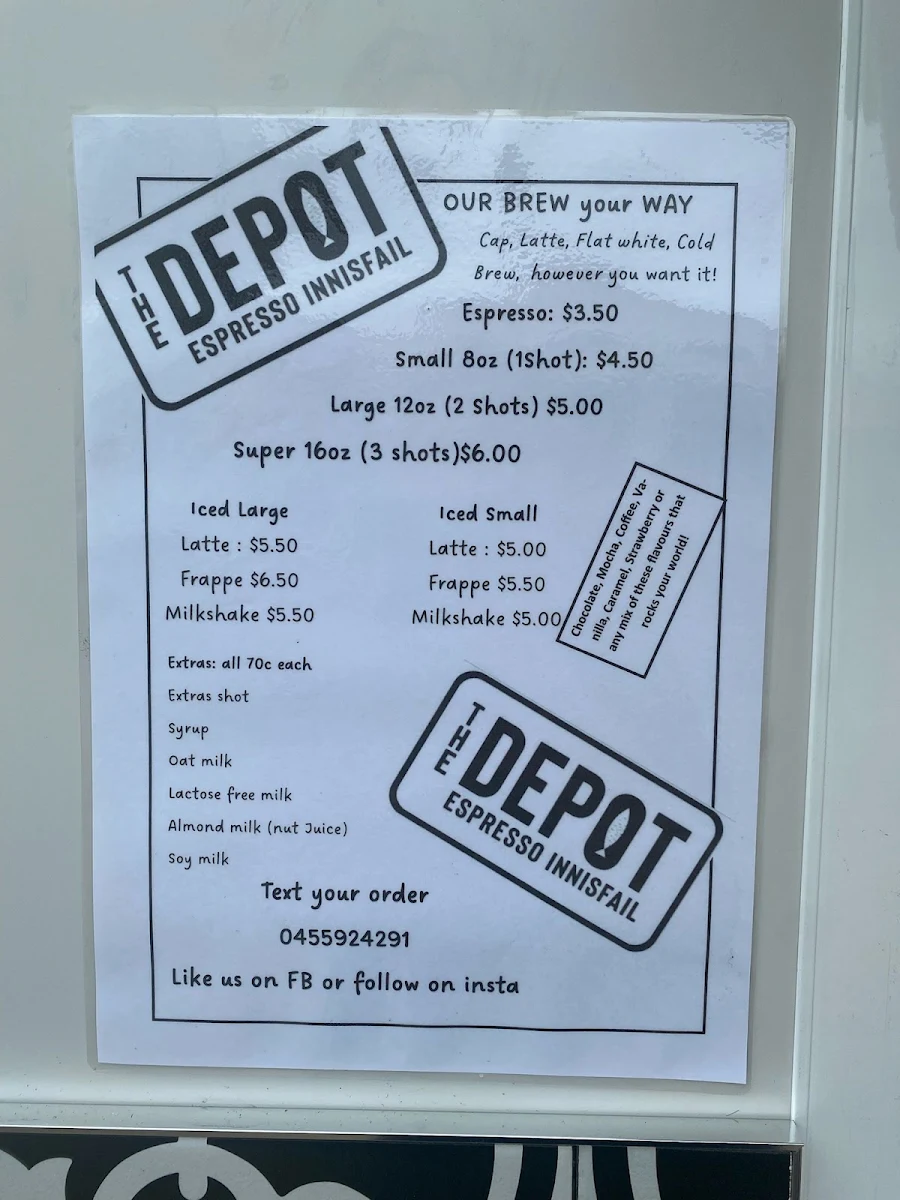 THE
DEPOT
ESPRESSO INNISFAIL
OUR BREW your WAY
Cap, Latte, Flat white, Cold
Brew, however you want it!
Espresso: $3.50
Small 8oz (1Shot): $4.50
Large 12oz (2 Shots) $5.00
Super 16oz (3 shots)$6.00
Iced Large
Latte : $5.50
Frappe $6.50
Milkshake $5.50
Iced Small
Latte : $5.00
Frappe $5.50
Milkshake $5.00
Chocolate, Mocha, Coffee, Va-
nilla, Caramel, Strawberry or
any mix of these flavours that
rocks your world!
Extras: all 70c each
Extras shot
Syrup
Oat milk
Lactose free milk
Almond milk (nut Juice)
Soy milk
THE
DEPOT
ESPRESSO INNISFAIL
Text your order
0455924291
Like us on FB or follow on insta